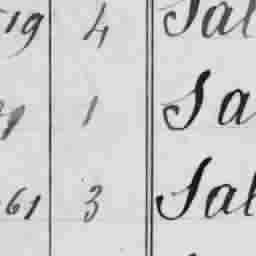 19 4 Sal
1 Sa
61 3 Sal